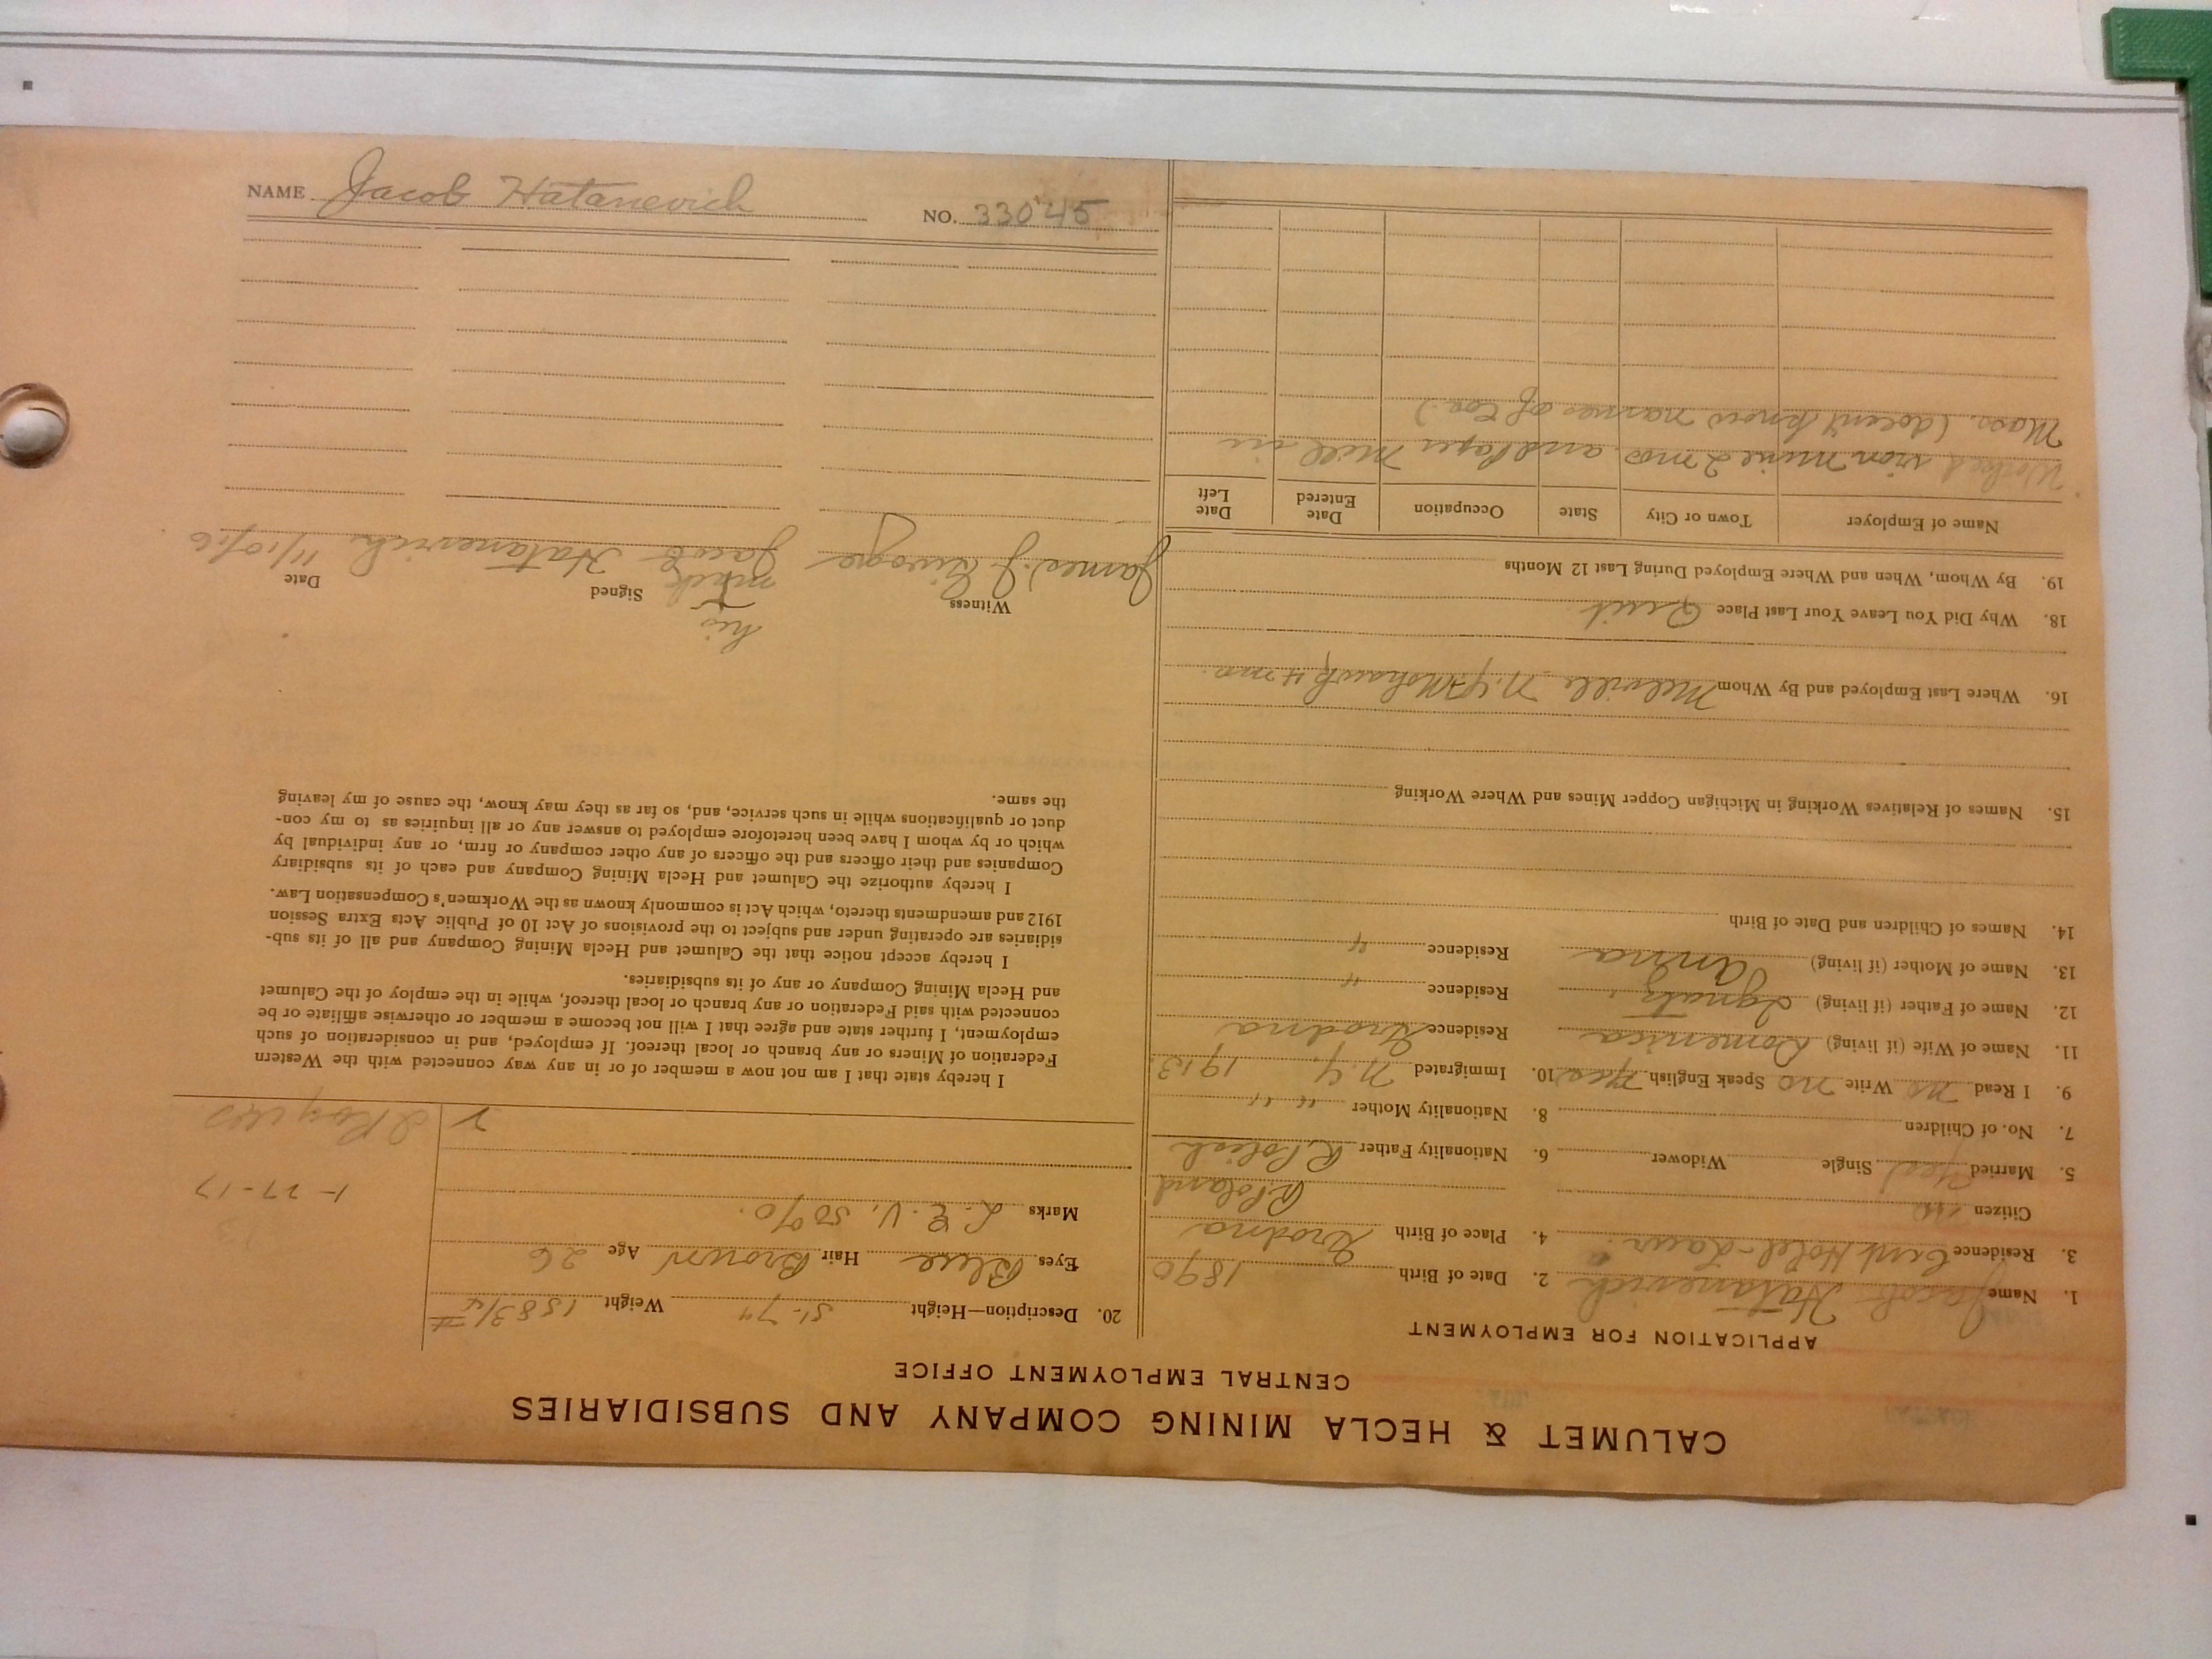 CALUMET & HECLA MINING COMPANY AND SUBSIDIARIES
CENTRAL EMPLOYMENT OFFICE
APPLICATION FOR EMPLOYMENT
1. Name Jacob Hatanevich 2. Date of Birth 1890
3. Residence Hotel 4. Place of Birth Grodna
Citizen no R. Poland
5. Married Yes Single Widower 6. Nationality Father R. Polish
7. No. of Children 8. Nationality Mother " "
9. I Read no Write no Speak English Yes 10. Immigrated N.Y. 1913
11. Name of Wife (if living) Domenica Residence Grodna
12. Name of Father (if living) Ignatz Residence "
13. Name of Mother (if living) Anna Residence "
14. Names of Children and Date of Birth
15. Names of Relatives Working in Michigan Copper Mines and Where Working
16. Where Last Employed and By Whom Melville N.Y. Mohawk 4 mo.
18. Why Did You Leave Your Last Place Quit
19. By Whom, When and Where Employed During Last 12 Months
Name of Employer Town or City State Occupation Date Entered Date Left
Worked iron mine 2 mo. and Paper Mill in
Mass. (doesn't know names of Cos.)
20. Description—Height 5'-7" Weight 158 3/4 #
Eyes Blue Hair Brown Age 26
Marks L.E.V. 50%.
1-27-17
I hereby state that I am not now a member of or in any way connected with the Western
Federation of Miners or any branch or local thereof. If employed, and in consideration of such
employment, I further state and agree that I will not become a member or otherwise affiliate or be
connected with said Federation or any branch or local thereof, while in the employ of the Calumet
and Hecla Mining Company or any of its subsidiaries.
I hereby accept notice that the Calumet and Hecla Mining Company and all of its sub-
sidiaries are operating under and subject to the provisions of Act 10 of Public Acts Extra Session
1912 and amendments thereto, which Act is commonly known as the Workmen's Compensation Law.
I hereby authorize the Calumet and Hecla Mining Company and each of its subsidiary
Companies and their officers and the officers of any other company or firm, or any individual by
which or by whom I have been heretofore employed to answer any or all inquiries as to my con-
duct or qualifications while in such service, and, so far as they may know, the cause of my leaving
the same.
his
Witness mark Signed Date
James J. Jacob Hatanevich 11/10/16
NAME Jacob Hatanevich NO. 33045